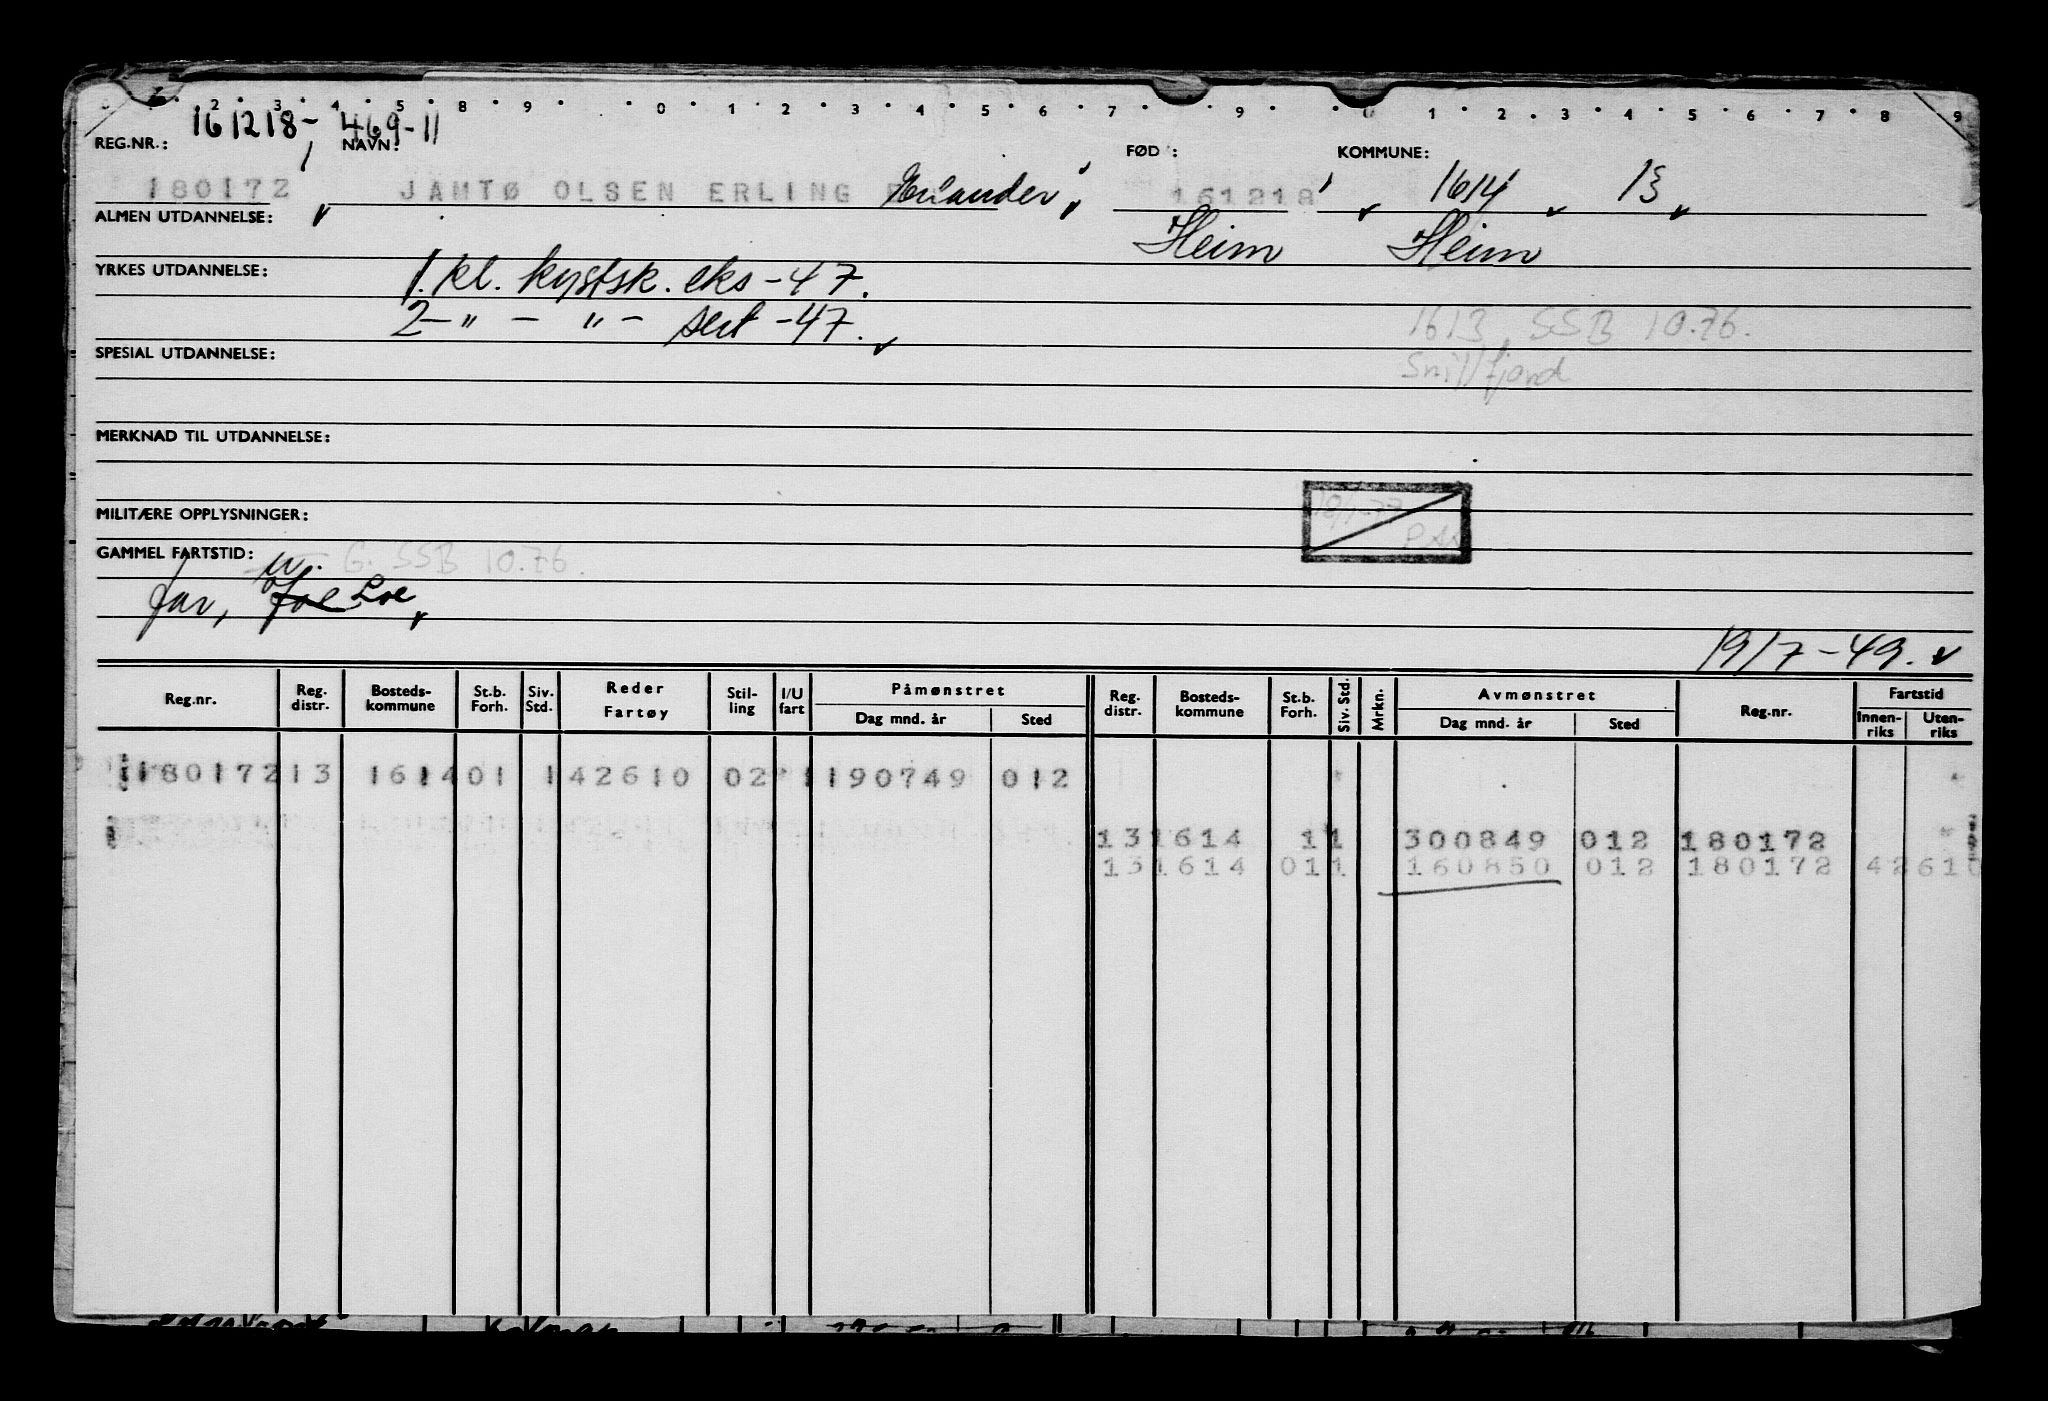 2 3 4 5 8 9 0 1 2 3 4 5 6 7 9 0 1 2 3 4 5 6 7 8 9
161218- 469-11
REG.NR.: NAVN: FØD: KOMMUNE:
180172 JAMTØ OLSEN ERLING Erlander 161218 1614 13
ALMEN UTDANNELSE: Heim Heim
YRKES UTDANNELSE: 1. kl. kystsk. eks -47.
2 - " - " - sert -47.
1613 SSB 10.76.
SPESIAL UTDANNELSE: Snillfjord
MERKNAD TIL UTDANNELSE:
18/1-77
MILITÆRE OPPLYSNINGER:
GAMMEL FARTSTID: G. SSB 10.76.
far, Loe
19/7-49.
Reg.nr. Reg. distr. Bosteds-kommune St.b. Forh. Siv. Std. Reder Fartøy Stil-ling I/U fart Påmønstret Dag mnd. år Sted Reg. distr. Bosteds-kommune St.b. Forh. Siv. Std. Mrkn. Avmønstret Dag mnd. år Sted Reg.nr. Fartstid Innen-riks Uten-riks
180172 13 1614 01 1 42610 02 1 190749 012
13 1614 1 1 300849 012 180172
13 1614 01 1 160850 012 180172 42610